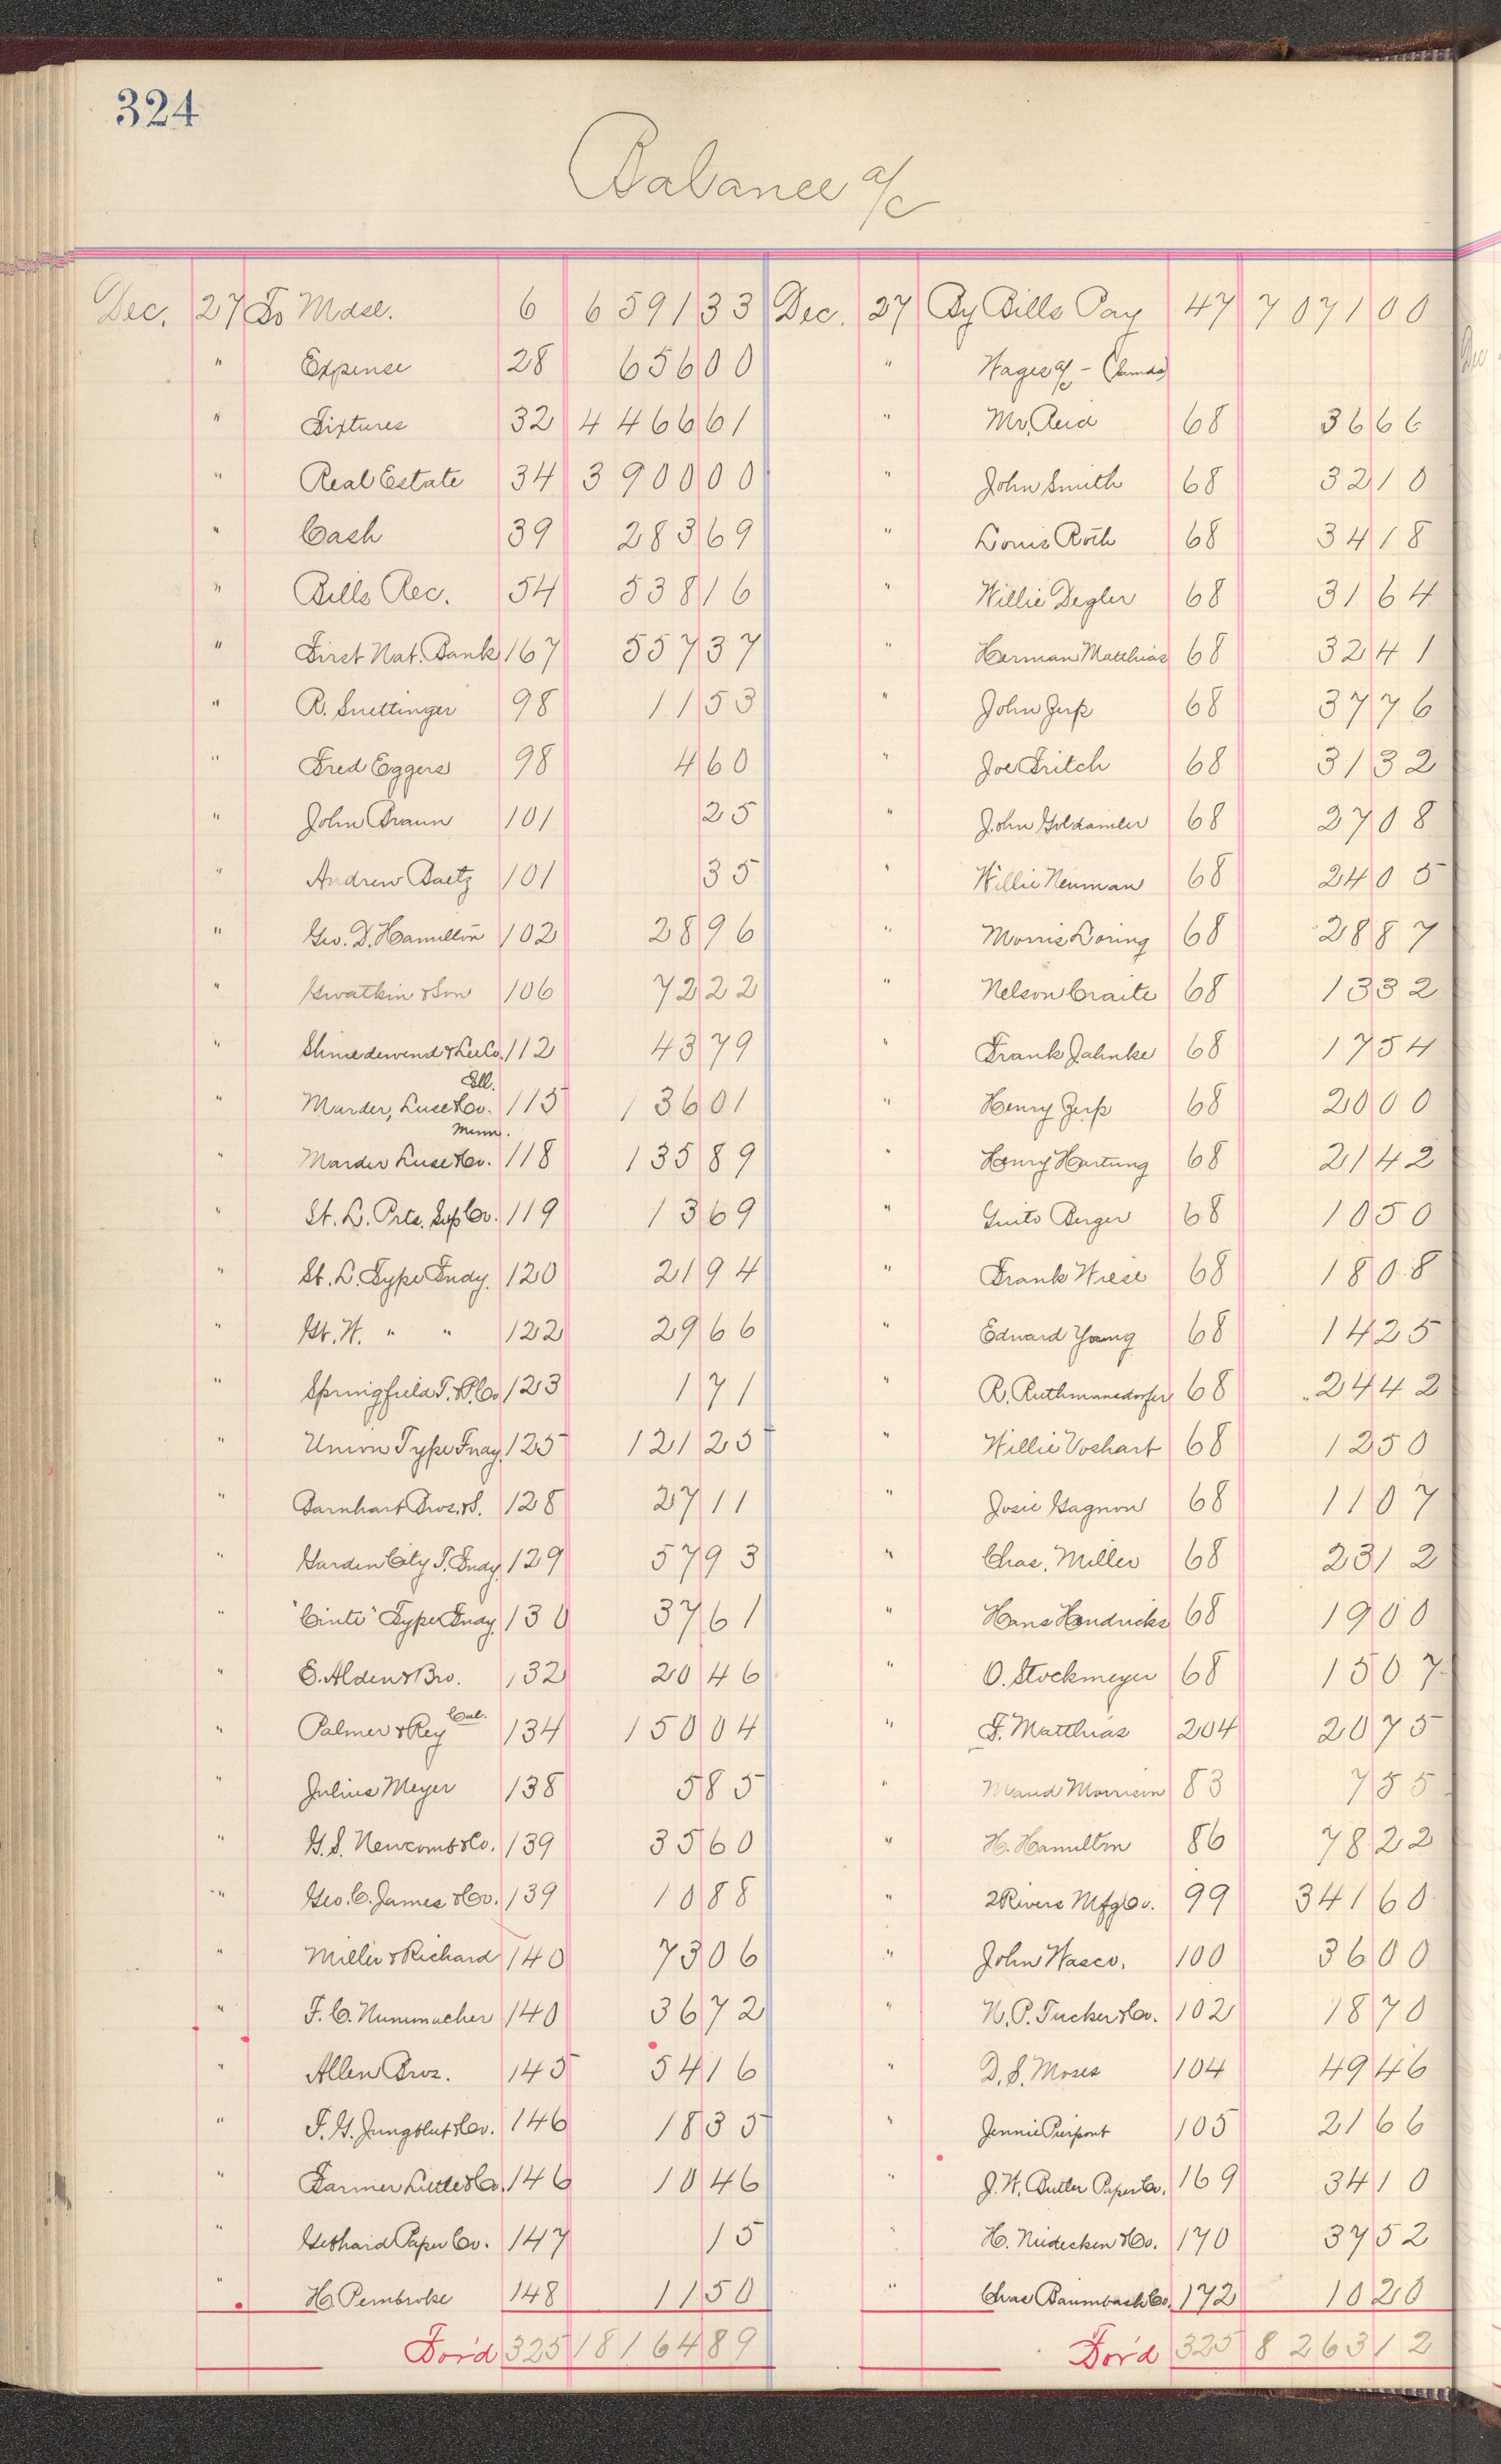 324
Balance a/c
Dec. 27 To Mdse. 6 6591 33 Dec. 27 By Bills Pay 47 7071 00
" Expense 28 656 00 " Wages a/c - (hands)
" Fixtures 32 4466 61 " Mr. Reid 68 36 66
" Real Estate 34 3900 00 " John Smith 68 32 10
" Cash 39 283 69 " Louis Roth 68 34 18
" Bills Rec. 54 538 16 " Willie Degler 68 31 64
" First Nat. Bank 167 557 37 " Herman Matthias 68 32 41
" R. Suettinger 98 11 53 " John Zerf 68 37 76
" Fred Eggers 98 4 60 " Joe Fritch 68 31 32
" John Braun 101 25 " John Goldamler 68 27 08
" Andrew Baetz 101 35 " Willie Neuman 68 24 05
" Geo. D. Hamilton 102 28 96 " Morris Loring 68 28 87
" Gwatkin & Son 106 72 22 " Nelson Craite 68 13 32
" Shniedewend & Lee Co. 112 43 79 " Frank Jahnke 68 17 54
" Marder, Luse & Co. Ill. 115 136 01 " Henry Zerf 68 20 00
" Marder Luse & Co. Minn. 118 135 89 " Henry Hartung 68 21 42
" St. L. Prts. Sup Co. 119 13 69 " Guito Berger 68 10 50
" St. L. Type Fndy. 120 21 94 " Frank Wiese 68 18 08
" Gt. W. " " 122 29 66 " Edward Young 68 14 25
" Springfield T. & P. Co 123 1 71 " R. Ruthmansdorfer 68 24 42
" Union Type Fndy. 125 121 25 " Willie Voshart 68 12 50
" Barnhart Bros. & S. 128 27 11 " Josie Gagnon 68 11 07
" Garden City T. Fndy. 129 57 93 " Chas. Miller 68 23 12
" "Cinti" Type Fndy. 130 37 61 " Hans Hendricks 68 19 00
" E. Alden & Bro. 132 20 46 " O. Stockmeyer 68 15 07
" Palmer & Rey Cal. 134 150 04 " F. Matthias 204 20 75
" Julius Meyer 138 5 85 " Maud Morrison 83 7 55
" G. S. Newcomb & Co. 139 35 60 " H. Hamilton 86 78 22
" Geo. C. James & Co. 139 10 88 " 2 Rivers Mfg Co. 99 341 60
" Miller & Richard 140 73 06 " John Wasco. 100 36 00
" F. C. Nunemacher 140 36 72 " N. P. Tucker & Co. 102 18 70
" Allen Bros. 145 54 16 " D. S. Moses 104 49 46
" F. G. Jungblut & Co. 146 18 35 " Jennie Pierpont 105 21 66
" Farmer Little & Co. 146 10 46 " J. W. Butler Paper Co. 169 34 10
" Gebhard Paper Co. 147 15 " H. Niedecken & Co. 170 37 52
" H. Pembroke 148 11 50 " Chas Baumbach Co. 172 10 20
For'd 325 18164 89 For'd 325 8263 12